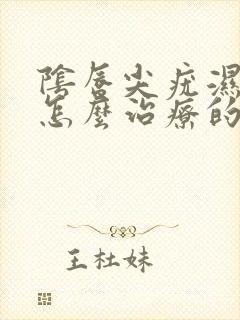 陰唇尖疣濕
怎麼治療的
王杜妹